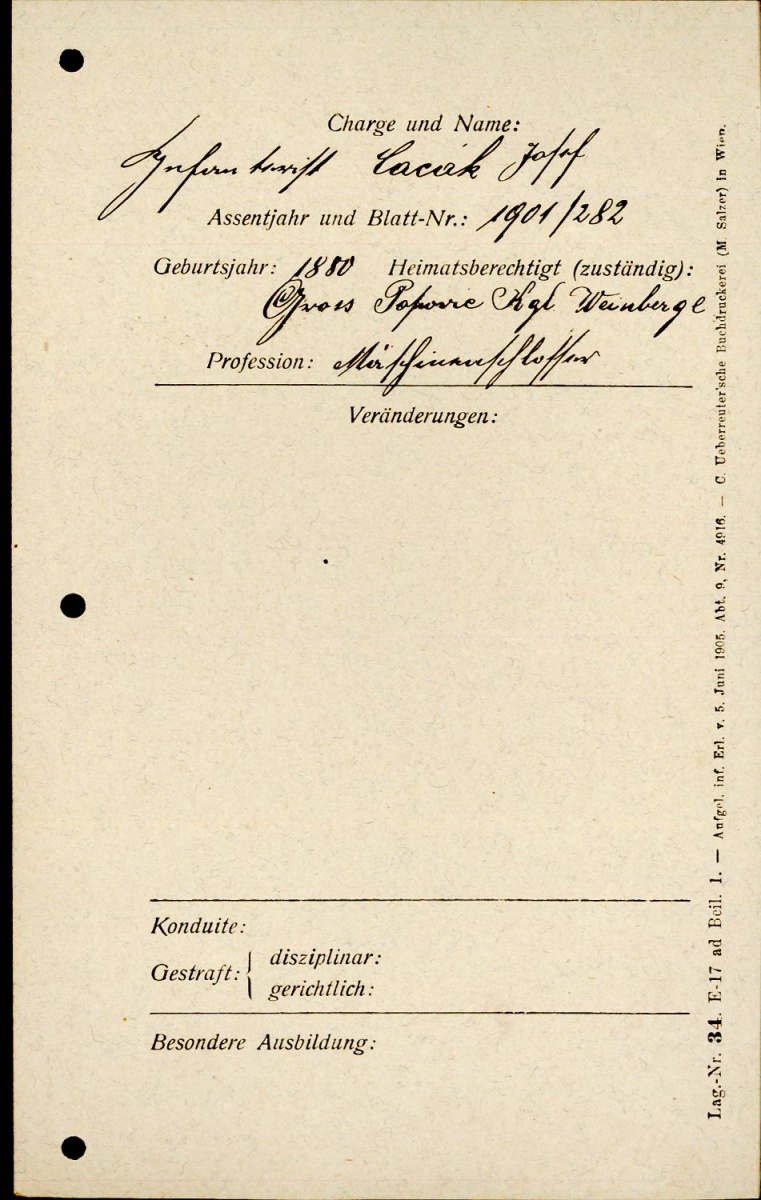 Charge und Name:
Infanterist Cacák Josef
Assentjahr und Blatt-Nr.: 1901/282
Geburtsjahr: 1880 Heimatsberechtigt (zuständig):
Gross Popovic Kgl Weinberge
Profession: Maschinenschlosser
Veränderungen:
Konduite:
Gestraft: { disziplinar:
gerichtlich:
Besondere Ausbildung:
Lag.-Nr. 34. E-17 ad Beil. 1. — Aufgel. inf. Erl. v. 5. Juni 1905. Abt. 9, Nr. 4916. — C. Ueberreuter'sche Buchdruckerei (M. Salzer) in Wien.